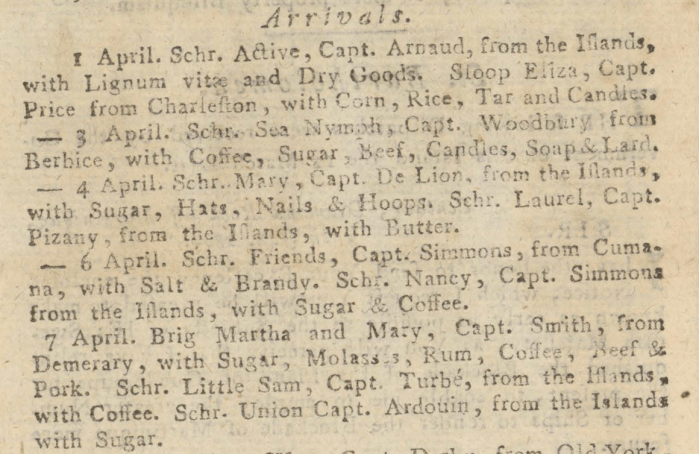 Arrivals.
1 April. Schr. Active, Capt. Arnaud, from the Iſlands,
with Lignum vitæ and Dry Goods. Sloop Eliza, Capt.
Price from Charleſton, with Corn, Rice, Tar and Candles.
— 3 April. Schr. Sea Nymph, Capt. Woodbury from
Berbice, with Coffee, Sugar, Beef, Candles, Soap & Lard.
— 4 April. Schr. Mary, Capt. De Lion, from the Iſlands,
with Sugar, Hats, Nails & Hoops. Schr. Laurel, Capt.
Pizany, from the Iſlands, with Butter.
— 6 April. Schr. Friends, Capt. Simmons, from Cuma-
na, with Salt & Brandy. Schr. Nancy, Capt. Simmons
from the Iſlands, with Sugar & Coffee.
7 April. Brig Martha and Mary, Capt. Smith, from
Demerary, with Sugar, Molasses, Rum, Coffee, Beef &
Pork. Schr. Little Sam, Capt. Turbé, from the Iſlands,
with Coffee. Schr. Union Capt. Ardouin, from the Islands
with Sugar.
from Old-York